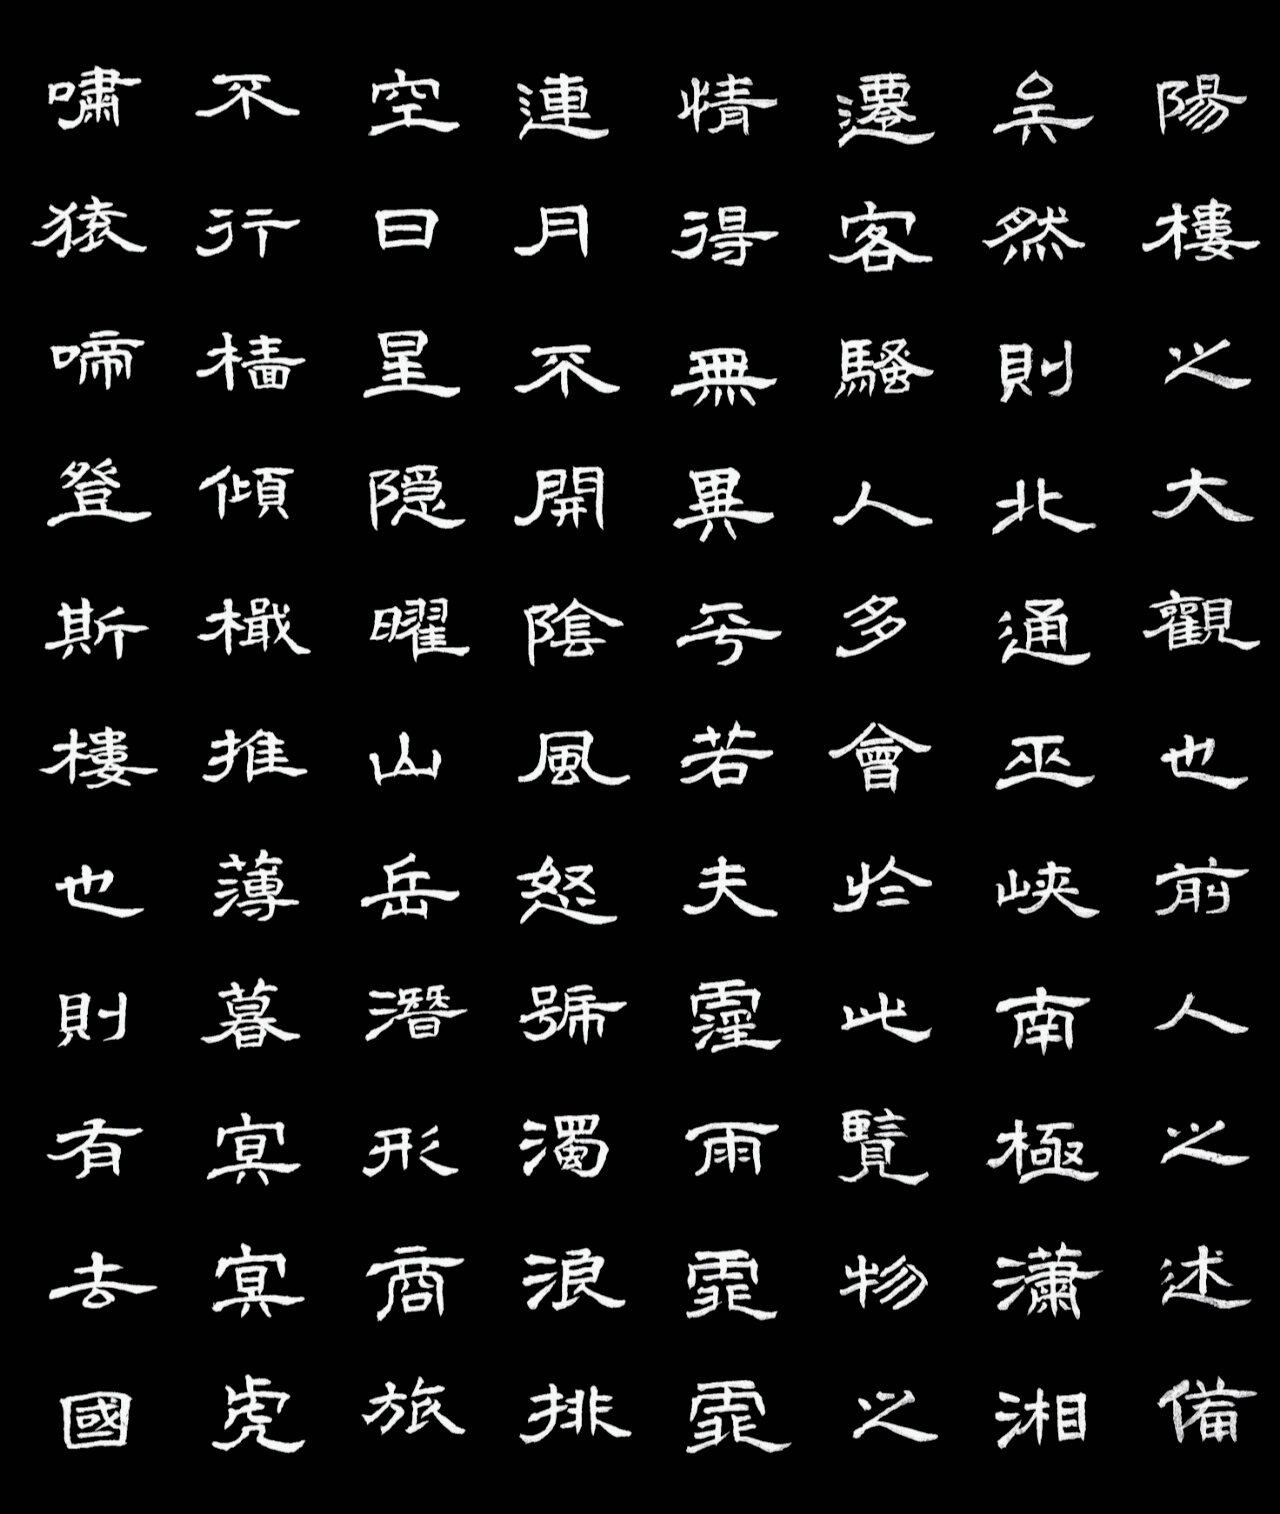 陽樓之大觀也前人之述備
矣然則北通巫峽南極瀟湘
遷客騷人多會於此覽物之
情得無異乎若夫霪雨霏霏
連月不開陰風怒號濁浪排
空日星隱曜山岳潛形商旅
不行檣傾檝推薄暮冥冥虎
嘯猿啼登斯樓也則有去國